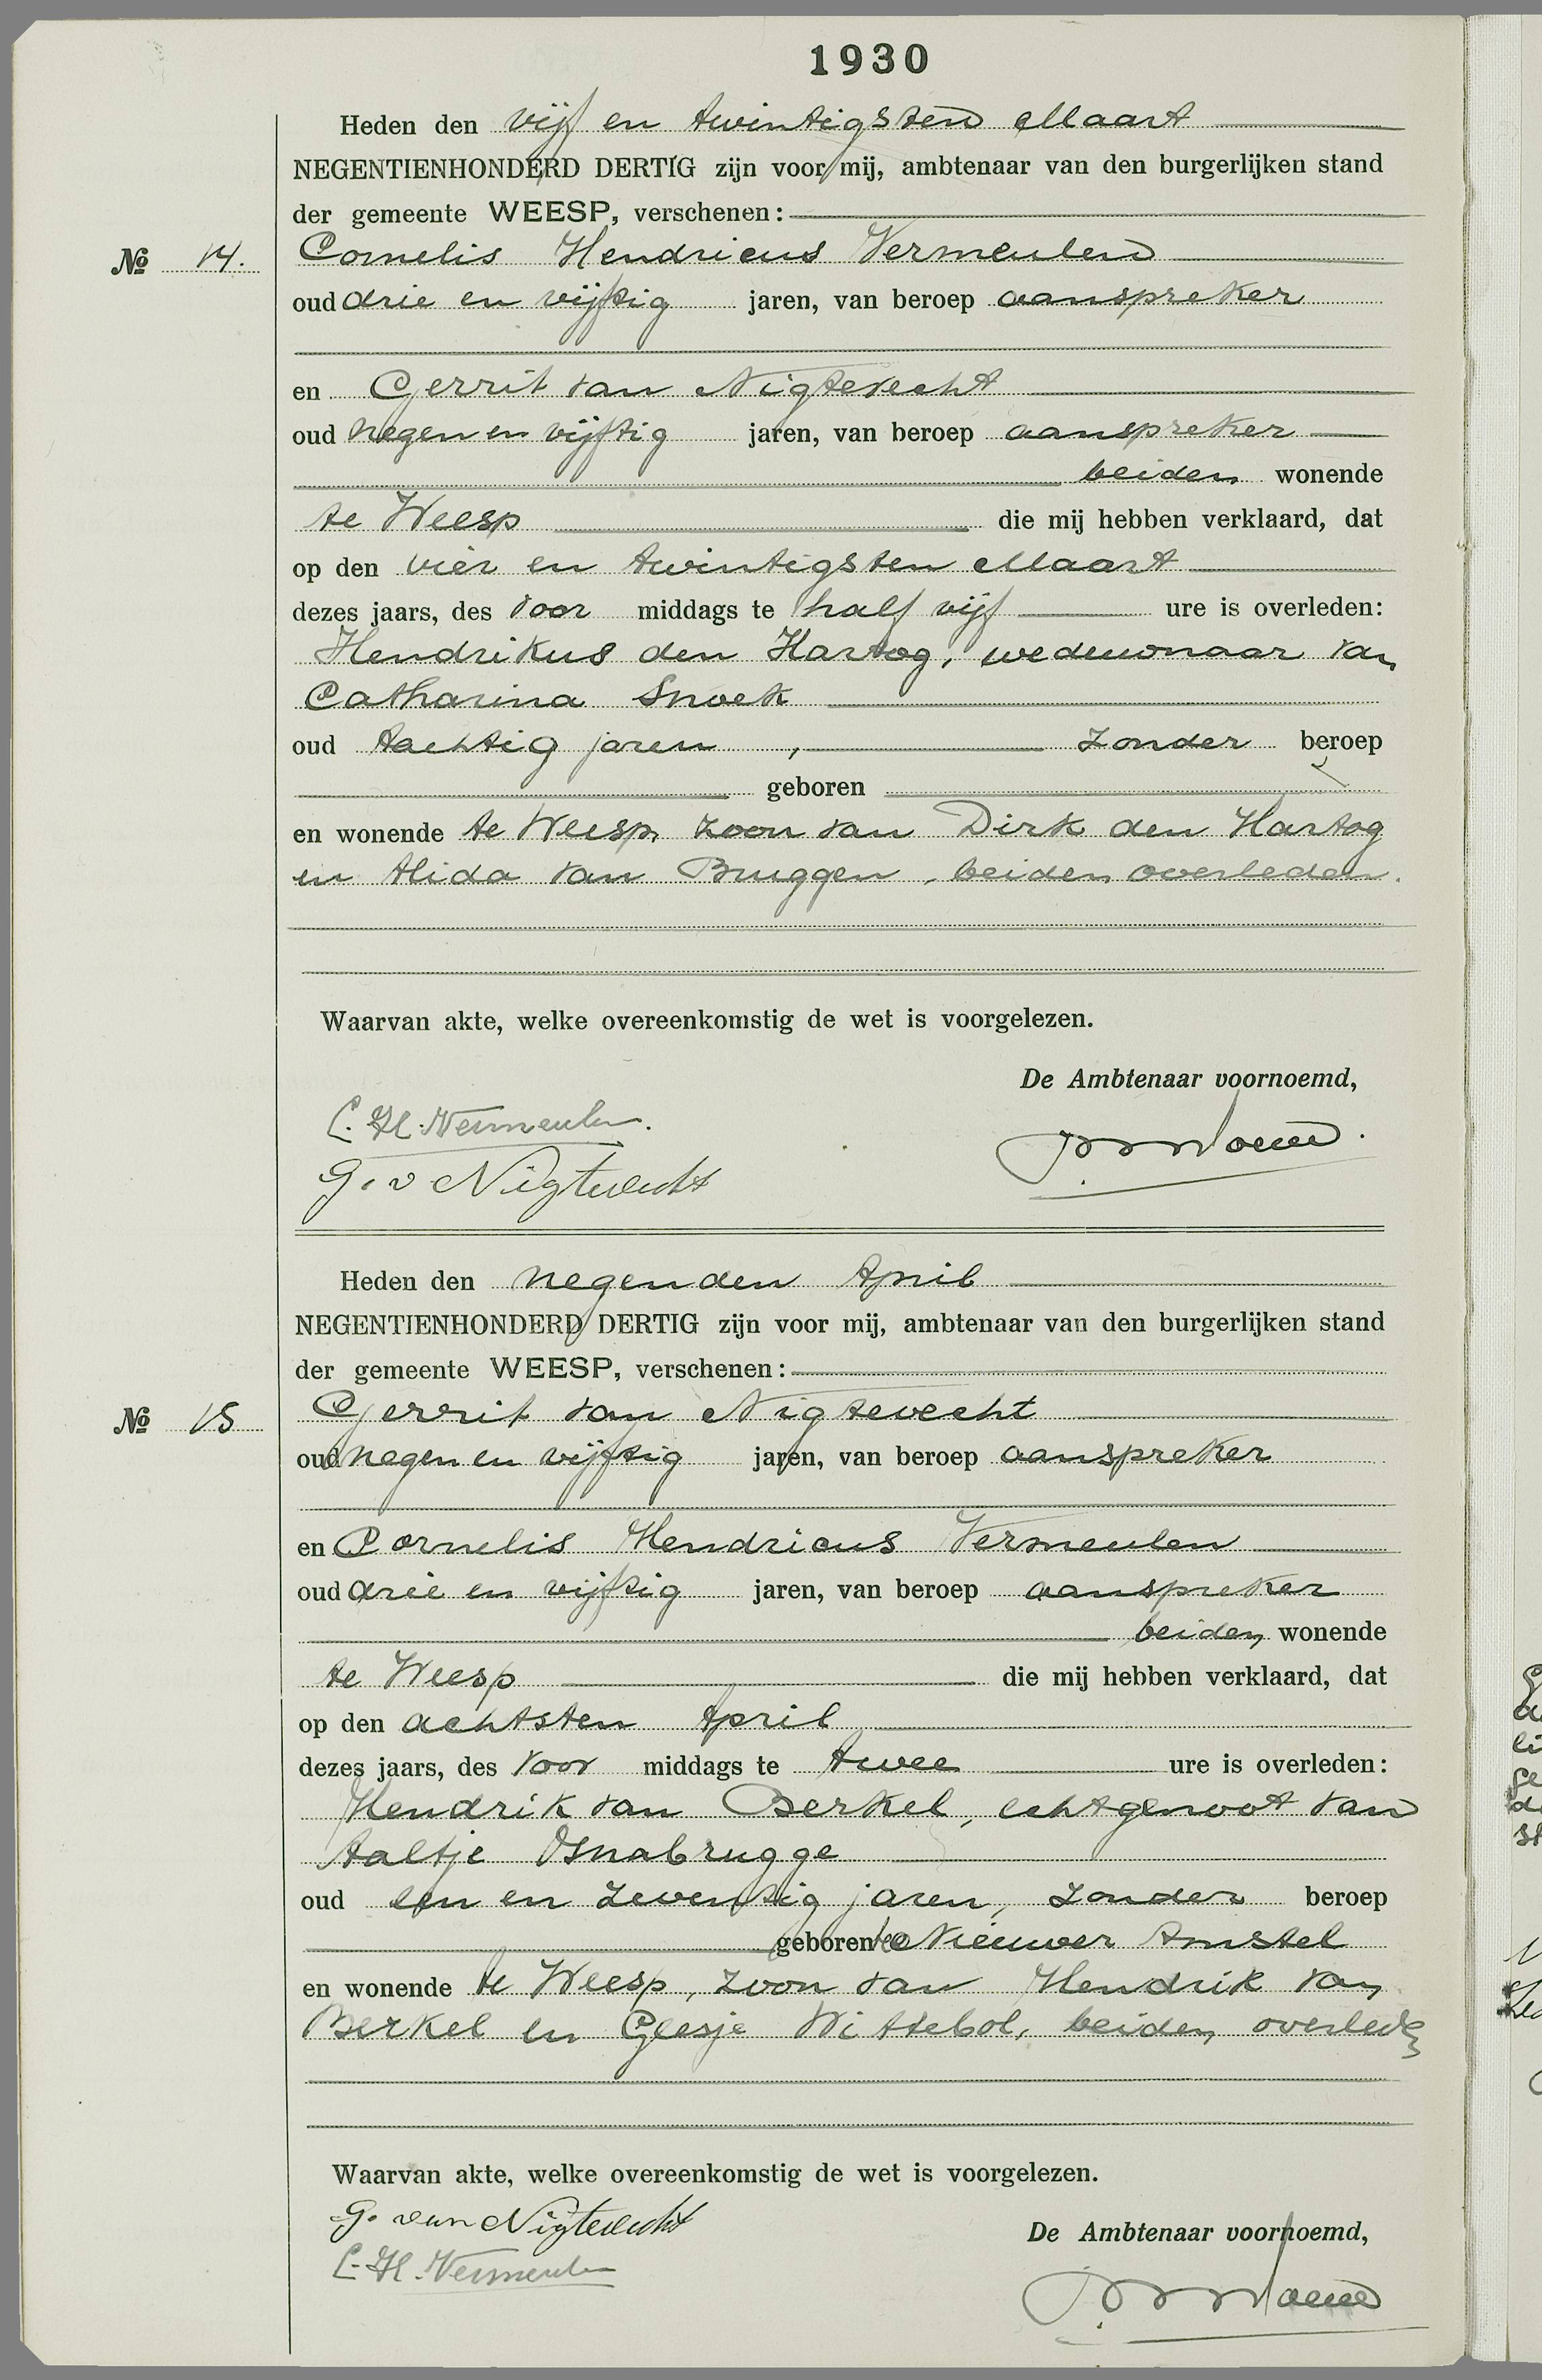 1930
Heden den vijf en twintigsten Maart
NEGENTIENHONDERD DERTIG zijn voor mij, ambtenaar van den burgerlijken stand
der gemeente WEESP, verschenen:
No 14. Cornelis Hendricus Vermeulen
oud drie en vijftig jaren, van beroep aanspreker
en Gerrit van Nigtevecht
oud negen en vijftig jaren, van beroep aanspreker
beiden wonende
te Weesp die mij hebben verklaard, dat
op den vier en twintigsten Maart
dezes jaars, des voor middags te half vijf ure is overleden:
Hendrikus den Hartog, weduwnaar van
Catharina Snoek
oud tachtig jaren, zonder beroep
geboren
en wonende te Weesp, zoon van Dirk den Hartog
en Alida van Bruggen, beiden overleden.
Waarvan akte, welke overeenkomstig de wet is voorgelezen.
De Ambtenaar voornoemd,
C. H. Vermeulen.
G. v Nigtevecht
Heden den negenden April
NEGENTIENHONDERD DERTIG zijn voor mij, ambtenaar van den burgerlijken stand
der gemeente WEESP, verschenen:
No 15 Gerrit van Nigtevecht
oud negen en vijftig jaren, van beroep aanspreker
en Cornelis Hendricus Vermeulen
oud drie en vijftig jaren, van beroep aanspreker
beiden wonende
te Weesp die mij hebben verklaard, dat
op den achtsten April
dezes jaars, des voor middags te twee ure is overleden:
Hendrik van Berkel, echtgenoot van
Aaltje Osnabrugge
oud een en zeventig jaren, zonder beroep
geboren te Nieuwer Amstel
en wonende te Weesp, zoon van Hendrik van
Berkel en Geesje Wittebol, beiden overleden
Waarvan akte, welke overeenkomstig de wet is voorgelezen.
G. van Nigtevecht
De Ambtenaar voornoemd,
C. H. Vermeulen